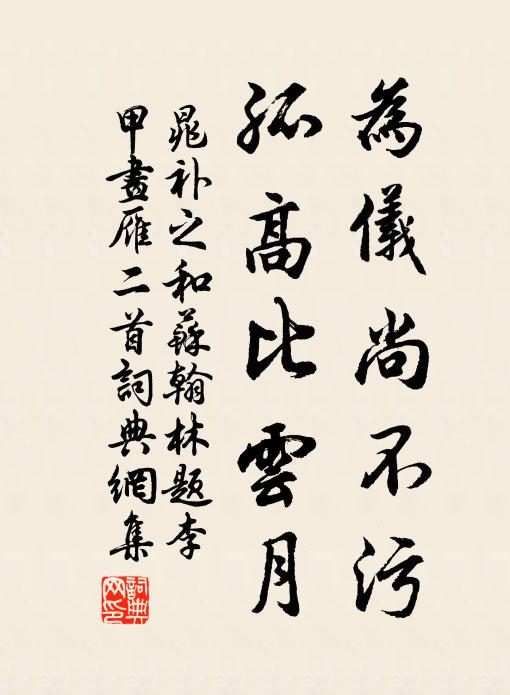 為儀尚不污
孤高比雲月
晁补之和蘇翰林題李
甲畫雁二首詞典網集
詞典網印